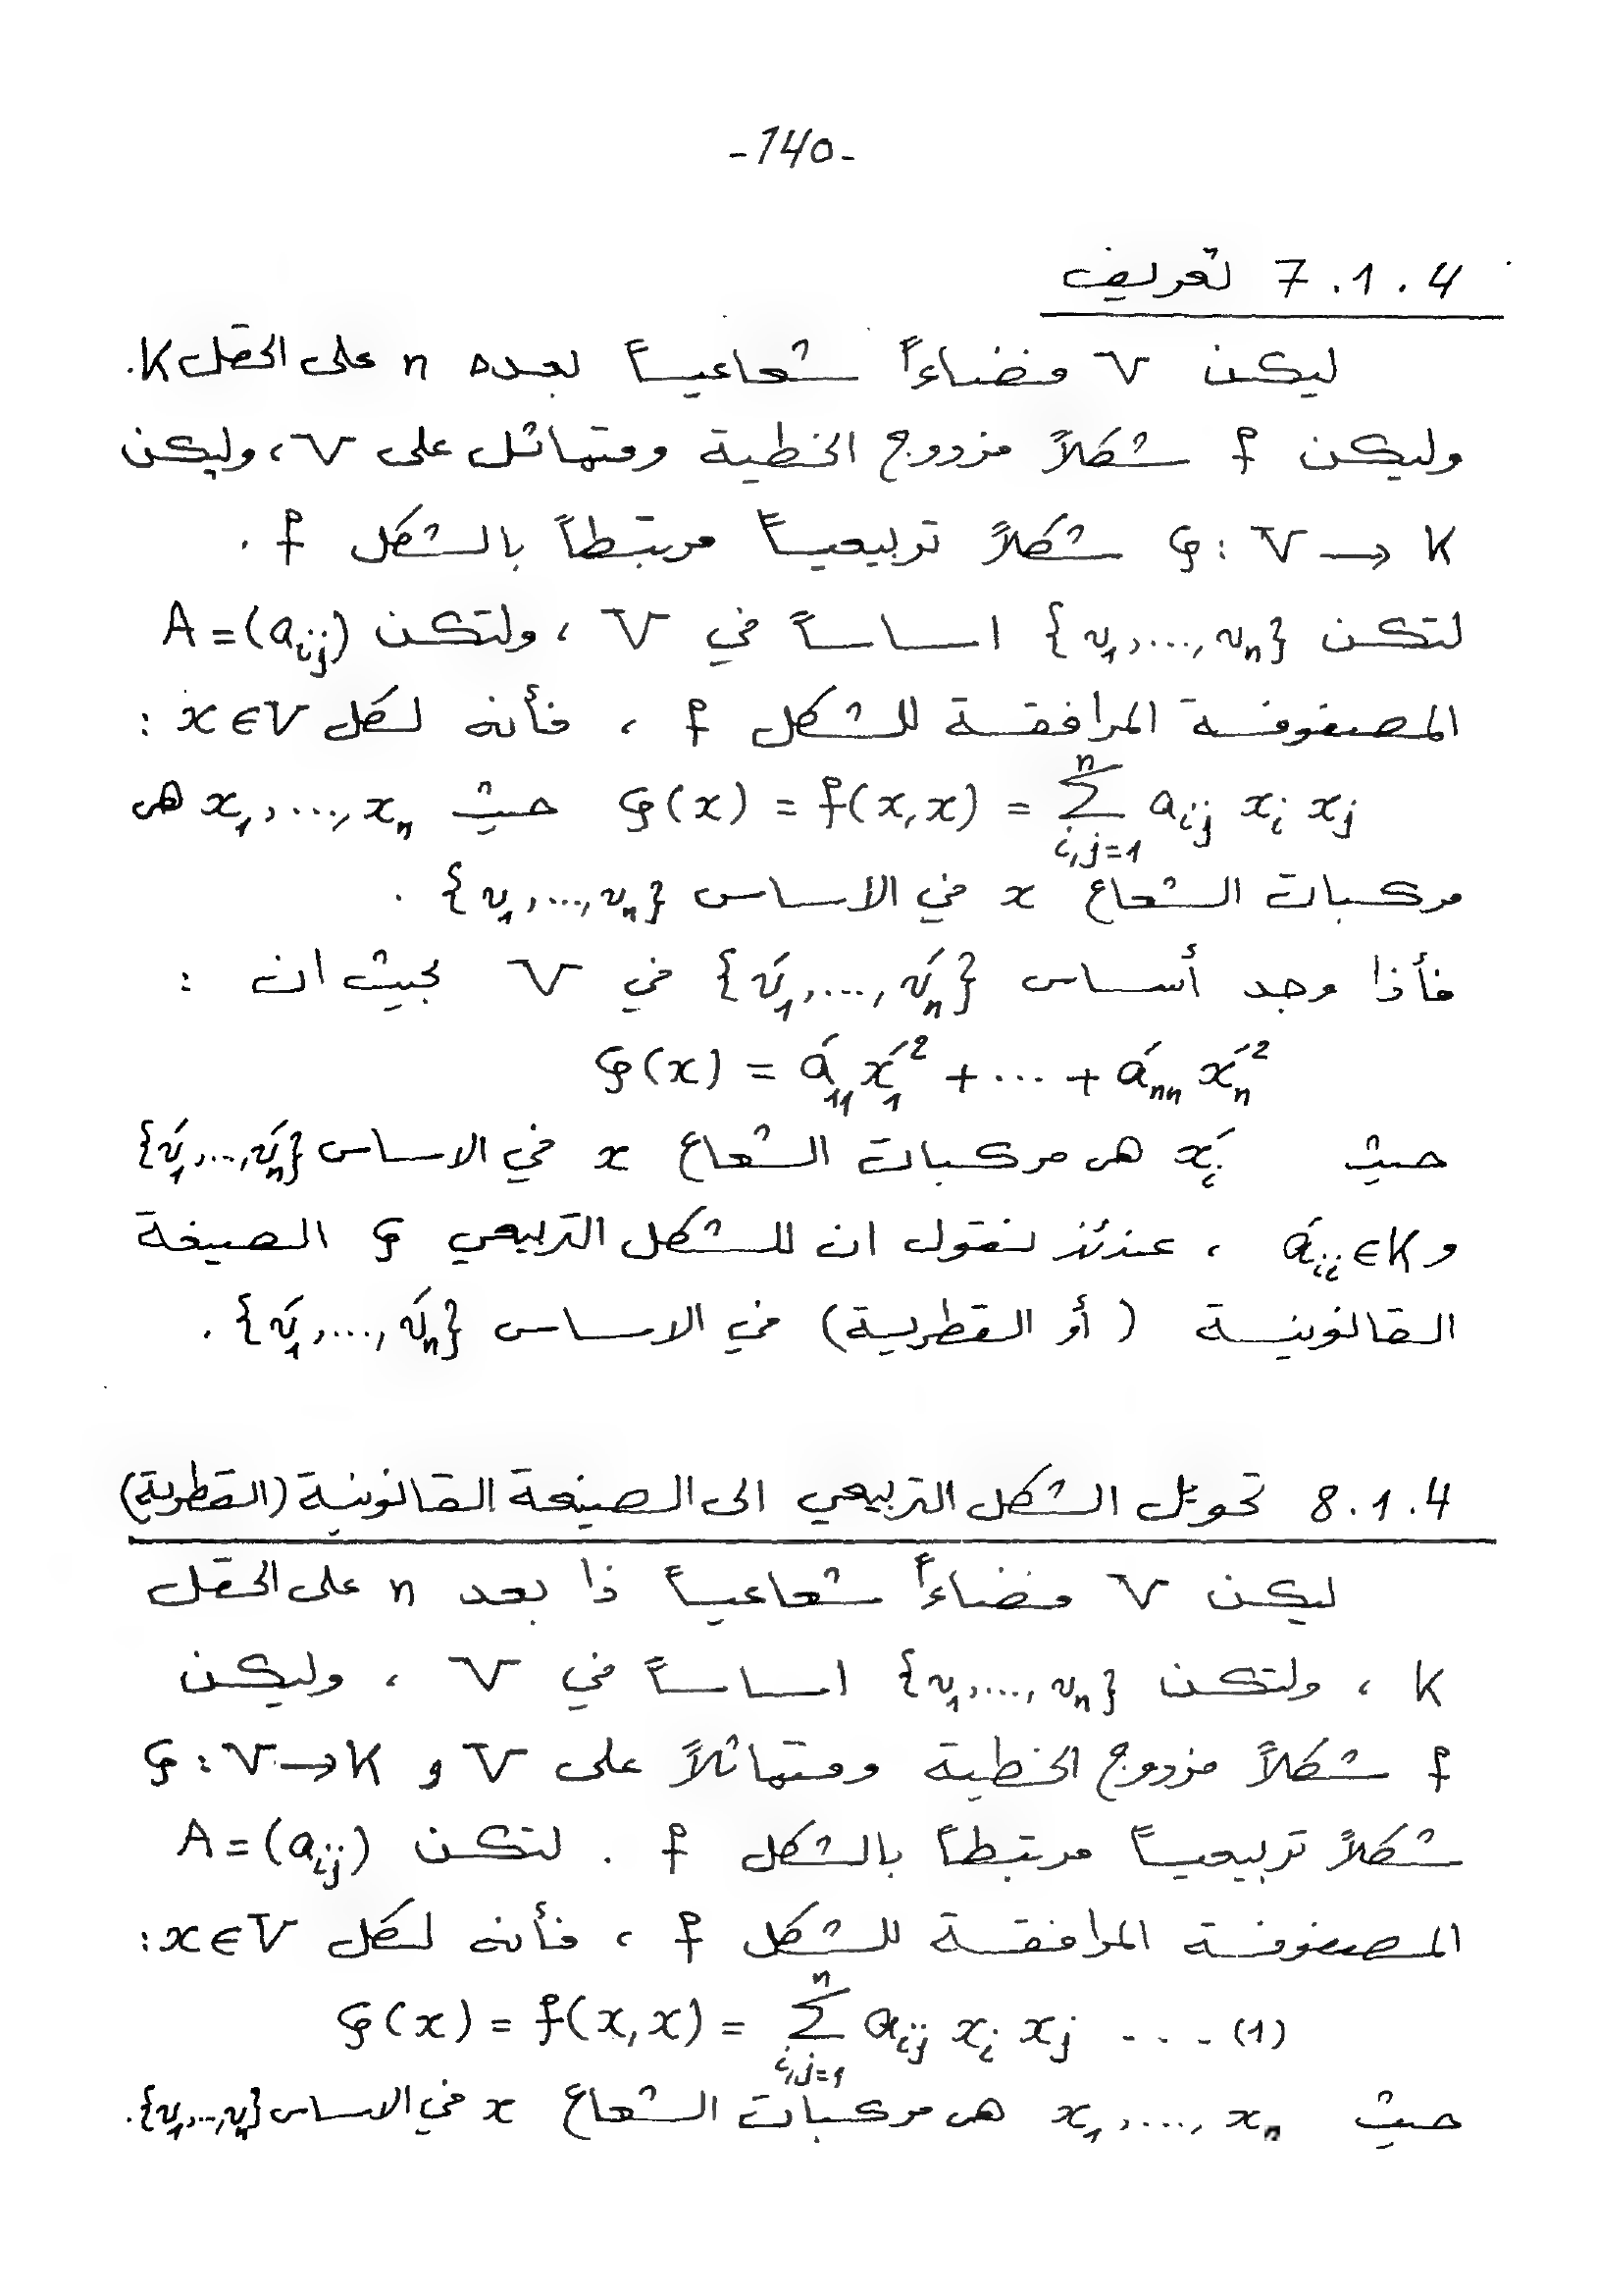 -140-
7.1.4 تعريف
ليكن V فضاءاً شعاعياً بعده n على الحقل K.
وليكن f شكلاً مزدوج الخطية ومتماثل على V، وليكن
φ: V → K شكلاً تربيعياً مرتبطاً بالشكل f .
لتكن {v₁,...,vₙ} اساساً في V ، ولتكن A=(aᵢⱼ)
المصفوفة المرافقة للشكل f ، فأنه لكل x∈V :
φ(x) = f(x,x) = Σⁿᵢ,ⱼ₌₁ aᵢⱼ xᵢ xⱼ حيث x₁,...,xₙ هي
مركبات الشعاع x في الاساس {v₁,...,vₙ} .
فأذا وجد أساس {v́₁,...,v́ₙ} في V بحيث ان :
φ(x) = á₁₁ x́₁² + ... + áₙₙ x́ₙ²
حيث x́ᵢ هي مركبات الشعاع x في الاساس {v́₁,...,v́ₙ}
و áᵢᵢ∈K ، عندئذ نقول ان للشكل التربيعي φ الصيغة
القانونية (أو القطرية) في الاساس {v́₁,...,v́ₙ} .
8.1.4 تحويل الشكل التربيعي الى الصيغة القانونية (القطرية)
ليكن V فضاءاً شعاعياً ذا بعد n على الحقل
K ، ولتكن {v₁,...,vₙ} اساساً في V ، وليكن
f شكلاً مزدوج الخطية ومتماثلاً على V و φ: V→K
شكلاً تربيعياً مرتبطاً بالشكل f . لتكن A=(aᵢⱼ)
المصفوفة المرافقة للشكل f ، فأنه لكل x∈V:
φ(x) = f(x,x) = Σⁿᵢ,ⱼ₌₁ aᵢⱼ xᵢ xⱼ ---(1)
حيث x₁,...,xₙ هي مركبات الشعاع x في الاساس {v₁,...,vₙ}.